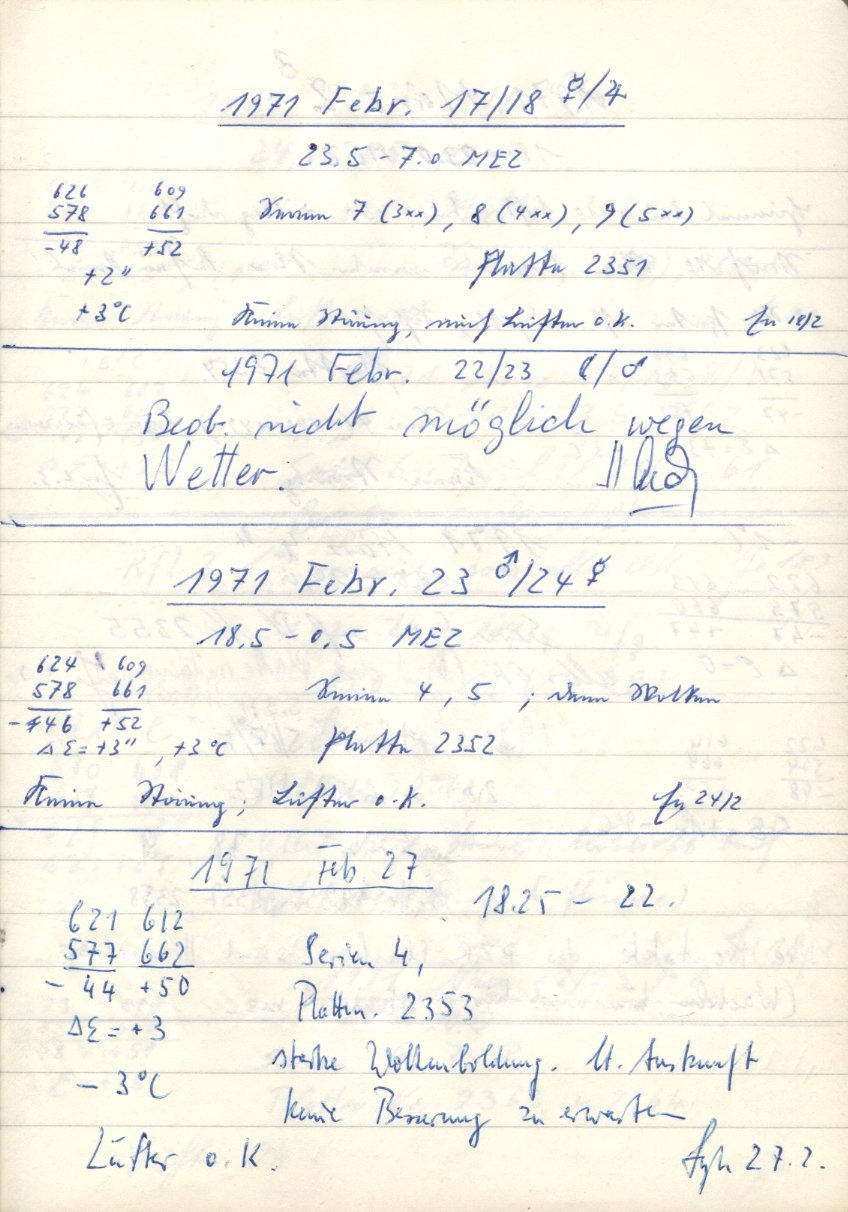 1971 Febr. 17/18 ☿/♃
23.5 - 7.0 MEZ
626 609
578 661 Serien 7 (3xx), 8 (4xx), 9 (5xx)
-48 +52
+2" Platte 2351
+3°C Keine Störung, auch Lüfter o.k. 18/2
1971 Febr. 22/23 ☾/♂
Beob. nicht möglich wegen
Wetter.
1971 Febr. 23 ♂/24 ☿
18.5 - 0.5 MEZ
624 609
578 661 Serien 4, 5 ; dann Wolken
-46 +52
Δε = +3", +3°C Platte 2352
Keine Störung; Lüfter o.k. 24/2
1971 Feb 27
18.25 - 22.
621 612
577 662 Serien 4,
- 44 +50
Platten. 2353
Δε = +3
starke Wolkenbildung. lt. Auskunft
- 3°C
keine Besserung zu erwarten
Lüfter o.k. 27.2.